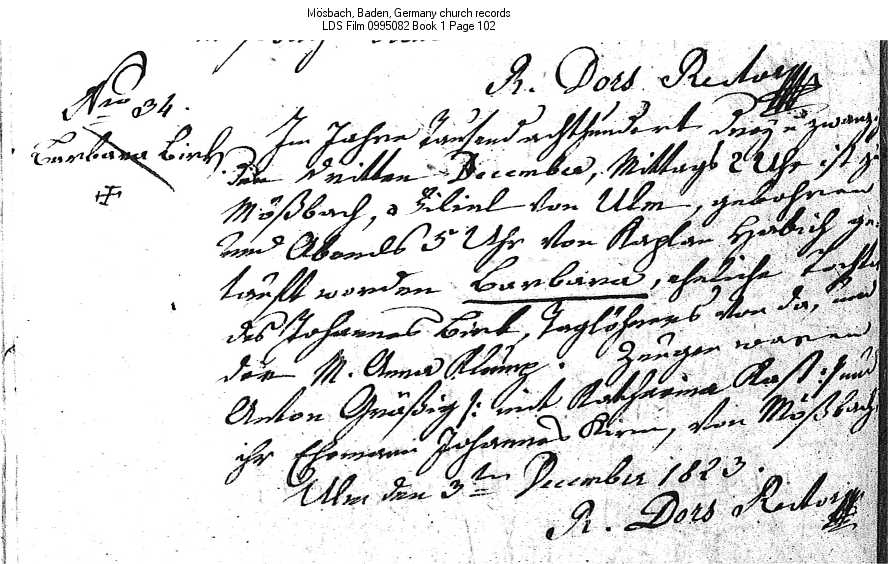 Mösbach, Baden, Germany church records
LDS Film 0995082 Book 1 Page 102
R. Dors Rector
Nro 34.
Barbara Birk.
Im Jahre Tausend achthundert drey u zwanzig
den dritten December, Mittags 2 Uhr ist zu
Mößbach, Filial von Ulm, gebohren
und Abends 5 Uhr von Kaplan Habich ge-
tauft worden Barbara, eheliche Tochter
des Johannes Birk, Taglöhners von da, und
der M. Anna Klump. Zeugen waren
Anton Gräßig /: mit Katharina Kast :/ und
ihr Ehemann Johannes Kirn, von Mößbach.
Ulm den 3ten December 1823.
R. Dors Rector